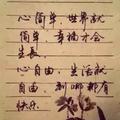 心简单，世界就
简单，幸福才会
生长。
心自由，生活就
自由，到哪都有
快乐。